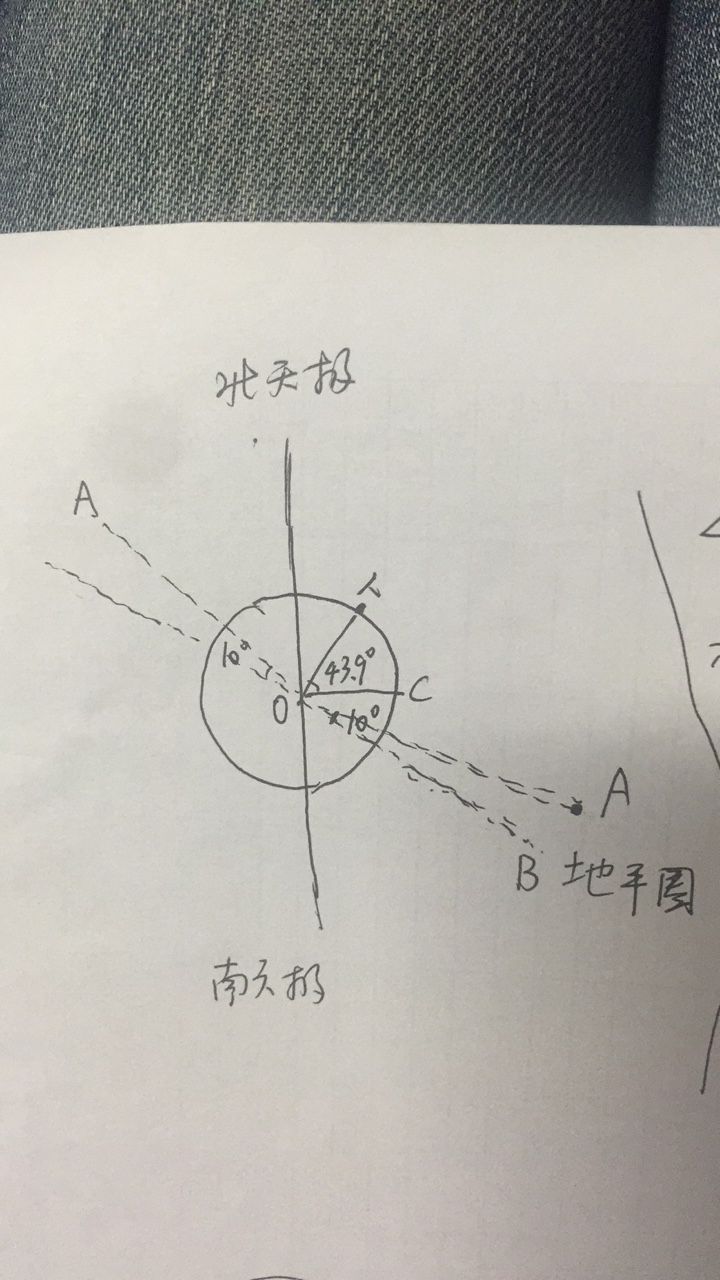 北天极
A
人
10°
43.9°
C
O
10°
A
B 地平圈
南天极